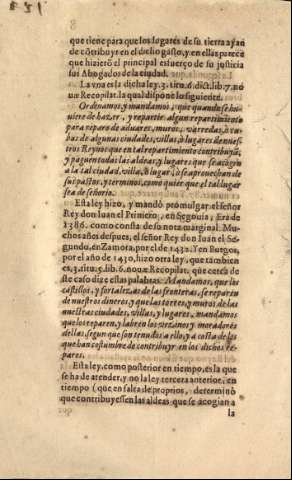 que tiene para que los lugares de su tierra ayan
de cõtribuyr en el dicho gasto, y en ellas parece
que hizierõ el principal esfuerço de su justicia
sus Abogados de la ciudad.
La vna es la dicha ley. 3. titu. 6. dict. lib. 7. no
ue Recopilat. la qual dispone lo siguiente.
Ordenamos, y mandamos, que quando se hu-
uiere de hazer, y repartir algun repartimiento
para reparo de adarues, muros,
das de algunas ciudades, villas, ò lugares de nues-
tros Reynos que en tal repartimiento contribuyã,
y paguen todas las aldeas, y lugares que se acogẽ
a la tal ciudad, villa, ò lugar, ò se aprouechan de
sus pastos, y terminos, como quier que el tal lugar
sea de señorio.
Esta ley hizo, y mandò promulgar el señor
Rey don Iuan el Primero, en Segouia, Era de
1386. como consta de su nota marginal. Mu-
chos años despues, el señor Rey don Iuan el Se-
gundo, en Zamora, por el de 1432. Y en Burgos,
por el año de 1430, hizo otra ley, que tambien
es, 3. titu. 5. lib. 6. noue Recopilat. que cerca de
este caso dize estas palabras. Mandamos, que los
castillos, y fortalezas de las fronteras, se reparẽ
de nuestros dineros, y que las torres, y muros de las
nuestras ciudades, villas, y lugares, mandamos
que los reparen, y labren los vezinos y moradores
dellas, segun que son tenudos a ello, y a costa de los
que han costumbre de contribuyr en los dichos re-
pares.
Esta ley, como posterior en tiempo, es la que
se ha de atender, y no la ley tercera anterior, en
tiempo (que en falta de proprios, determinò
que contribuyessen las aldeas que se acogian a
la